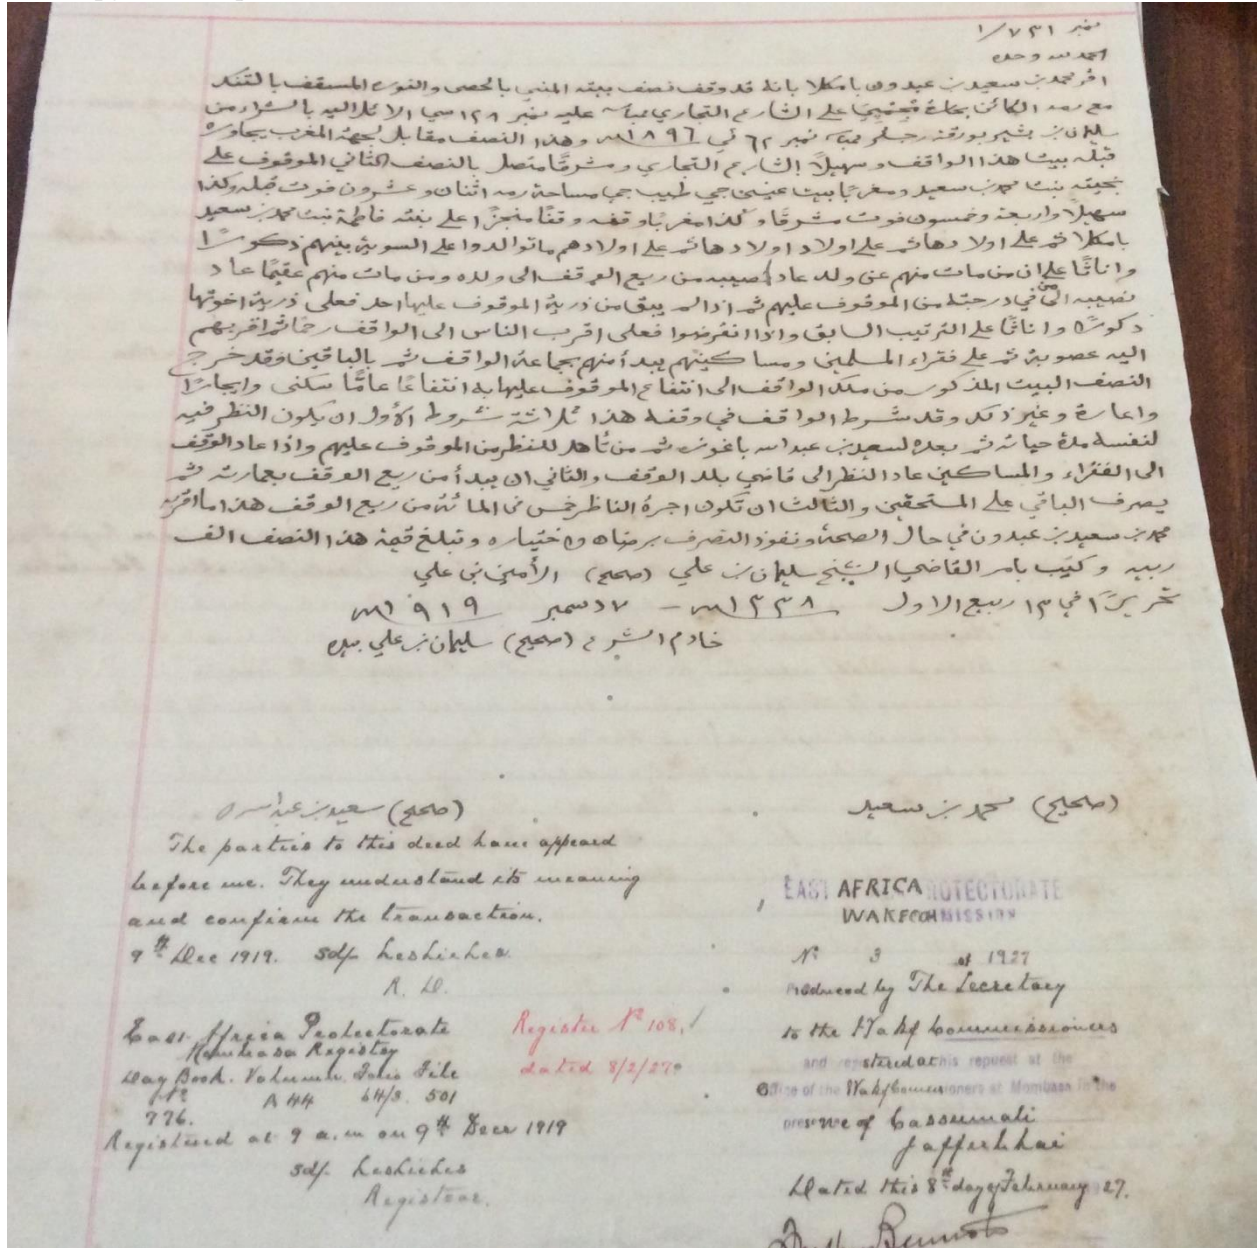 نمبر ١/٧٣١
الحمد لله وحده
اقر محمد بن سعيد بن عبدون بامكلا بانه قد وقف نصف بيته المبني بالحصى والنوره المسقف بالتنك
مع رمه الكائن بحارة على الشارع التجاري عليه نمبر ١٢٨ الآئل اليه بالشراء من
سليمان بن بشير بورقة نمبر ٦٢ في ١٨٩٦ وهذا النصف مقابل لجهة المغرب يجاوره
قبلة بيت هذا الواقف وسهيلًا الشارع التجاري ومشرقًا متصل بالنصف الثاني الموقوف على
بنت محمد بن سعيد ومغربًا بيت عيسى جي طيب جي مساحة رمه اثنان وعشرون فوت قبله وكذا
سهيلًا واربعة وخمسون فوت مشرقًا وكذا مغربًا وقفه وقفًا منجزًا على بنته فاطمة بنت محمد بن سعيد
بامكلا ثم على اولادها ثم على اولاد اولادها ثم على اولادهم ما توالدوا على السوية بينهم ذكورًا
واناثًا على ان من مات منهم عن ولد عاد نصيبه من ريع الوقف الى ولده ومن مات منهم عقيمًا عاد
نصيبه الى من في درجته من الموقوف عليهم ثم اذا لم يبق من ذرية الموقوف عليها احد فعلى ذرية اخوتها
ذكورًا واناثًا على الترتيب السابق واذا انقرضوا فعلى اقرب الناس الى الواقف رحمًا ثم اقربهم
اليه عصوبة ثم على فقراء المسلمين ومساكينهم يبدأ منهم بجماعة الواقف ثم بالباقين وقد خرج
النصف البيت المذكور من ملك الواقف الى انتفاع الموقوف عليها به انتفاعًا عامًا سكنى وايجارًا
واعارة وغير ذلك وقد شرط الواقف في وقفه هذا ثلاثة شروط الأول ان يكون النظر فيه
لنفسه مدة حياته ثم بعده لسعيد بن عبد الله باغوزه ثم من تأهل للنظر من الموقوف عليهم واذا عاد الوقف
الى الفقراء والمساكين عاد النظر الى قاضي بلد الوقف والثاني ان يبدأ من ريع الوقف بعمارته ثم
يصرف الباقي على المستحقين والثالث ان تكون اجرة الناظر خمس في المائة من ريع الوقف هذا ما اقر به
محمد بن سعيد بن عبدون في حال الصحة ونفوذ التصرف برضاه واختياره وتبلغ قيمة هذا النصف الف
ربيه وكتب بامر القاضي الشيخ سليمان بن علي (صحيح) الأمين بن علي
تحريرًا في ١٣ ربيع الاول ١٣٣٨ - ٧ دسمبر ١٩١٩
خادم الشرع (صحيح) سليمان بن علي بيده
(صحيح) محمد بن سعيد
(صحيح) سعيد بن عبد الله
The parties to this deed have appeard
before me. They understand its meaning
and confirm the transaction.
9th Dec 1919. Sd/-
R. D.
East Africa Protectorate
Mombasa Registry
Day Book. Volume. Folio File
No A 44 64/3. 501
776.
Registered at 9 a.m on 9th Decr 1919
Sd/-
Registrar.
Register No 108.
dated 8/2/27
EAST AFRICA PROTECTORATE
WAKF COMMISSION
No 3 of 1927
Produced by The Secretary
to the Wakf Commissioners
and registered at his request at the
Office of the Wakf Commissioners at Mombasa in the
presence of Cassumali
Jafferbhai
Dated this 8th day of February 27.